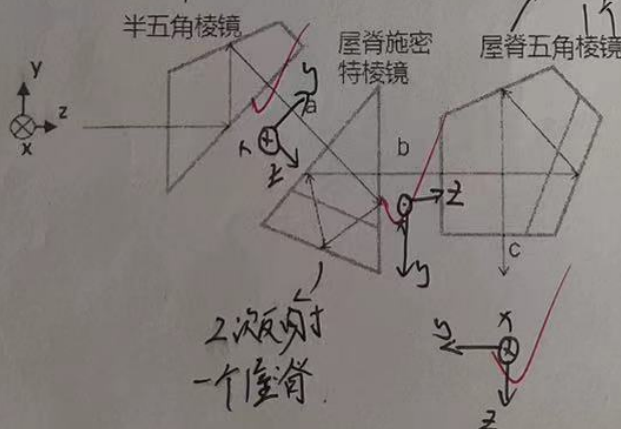 半五角棱镜
屋脊施密
特棱镜
屋脊五角棱镜
y
z
x
y
a
x
z
b
z
y
c
2次反射
一个屋脊
x
y
z